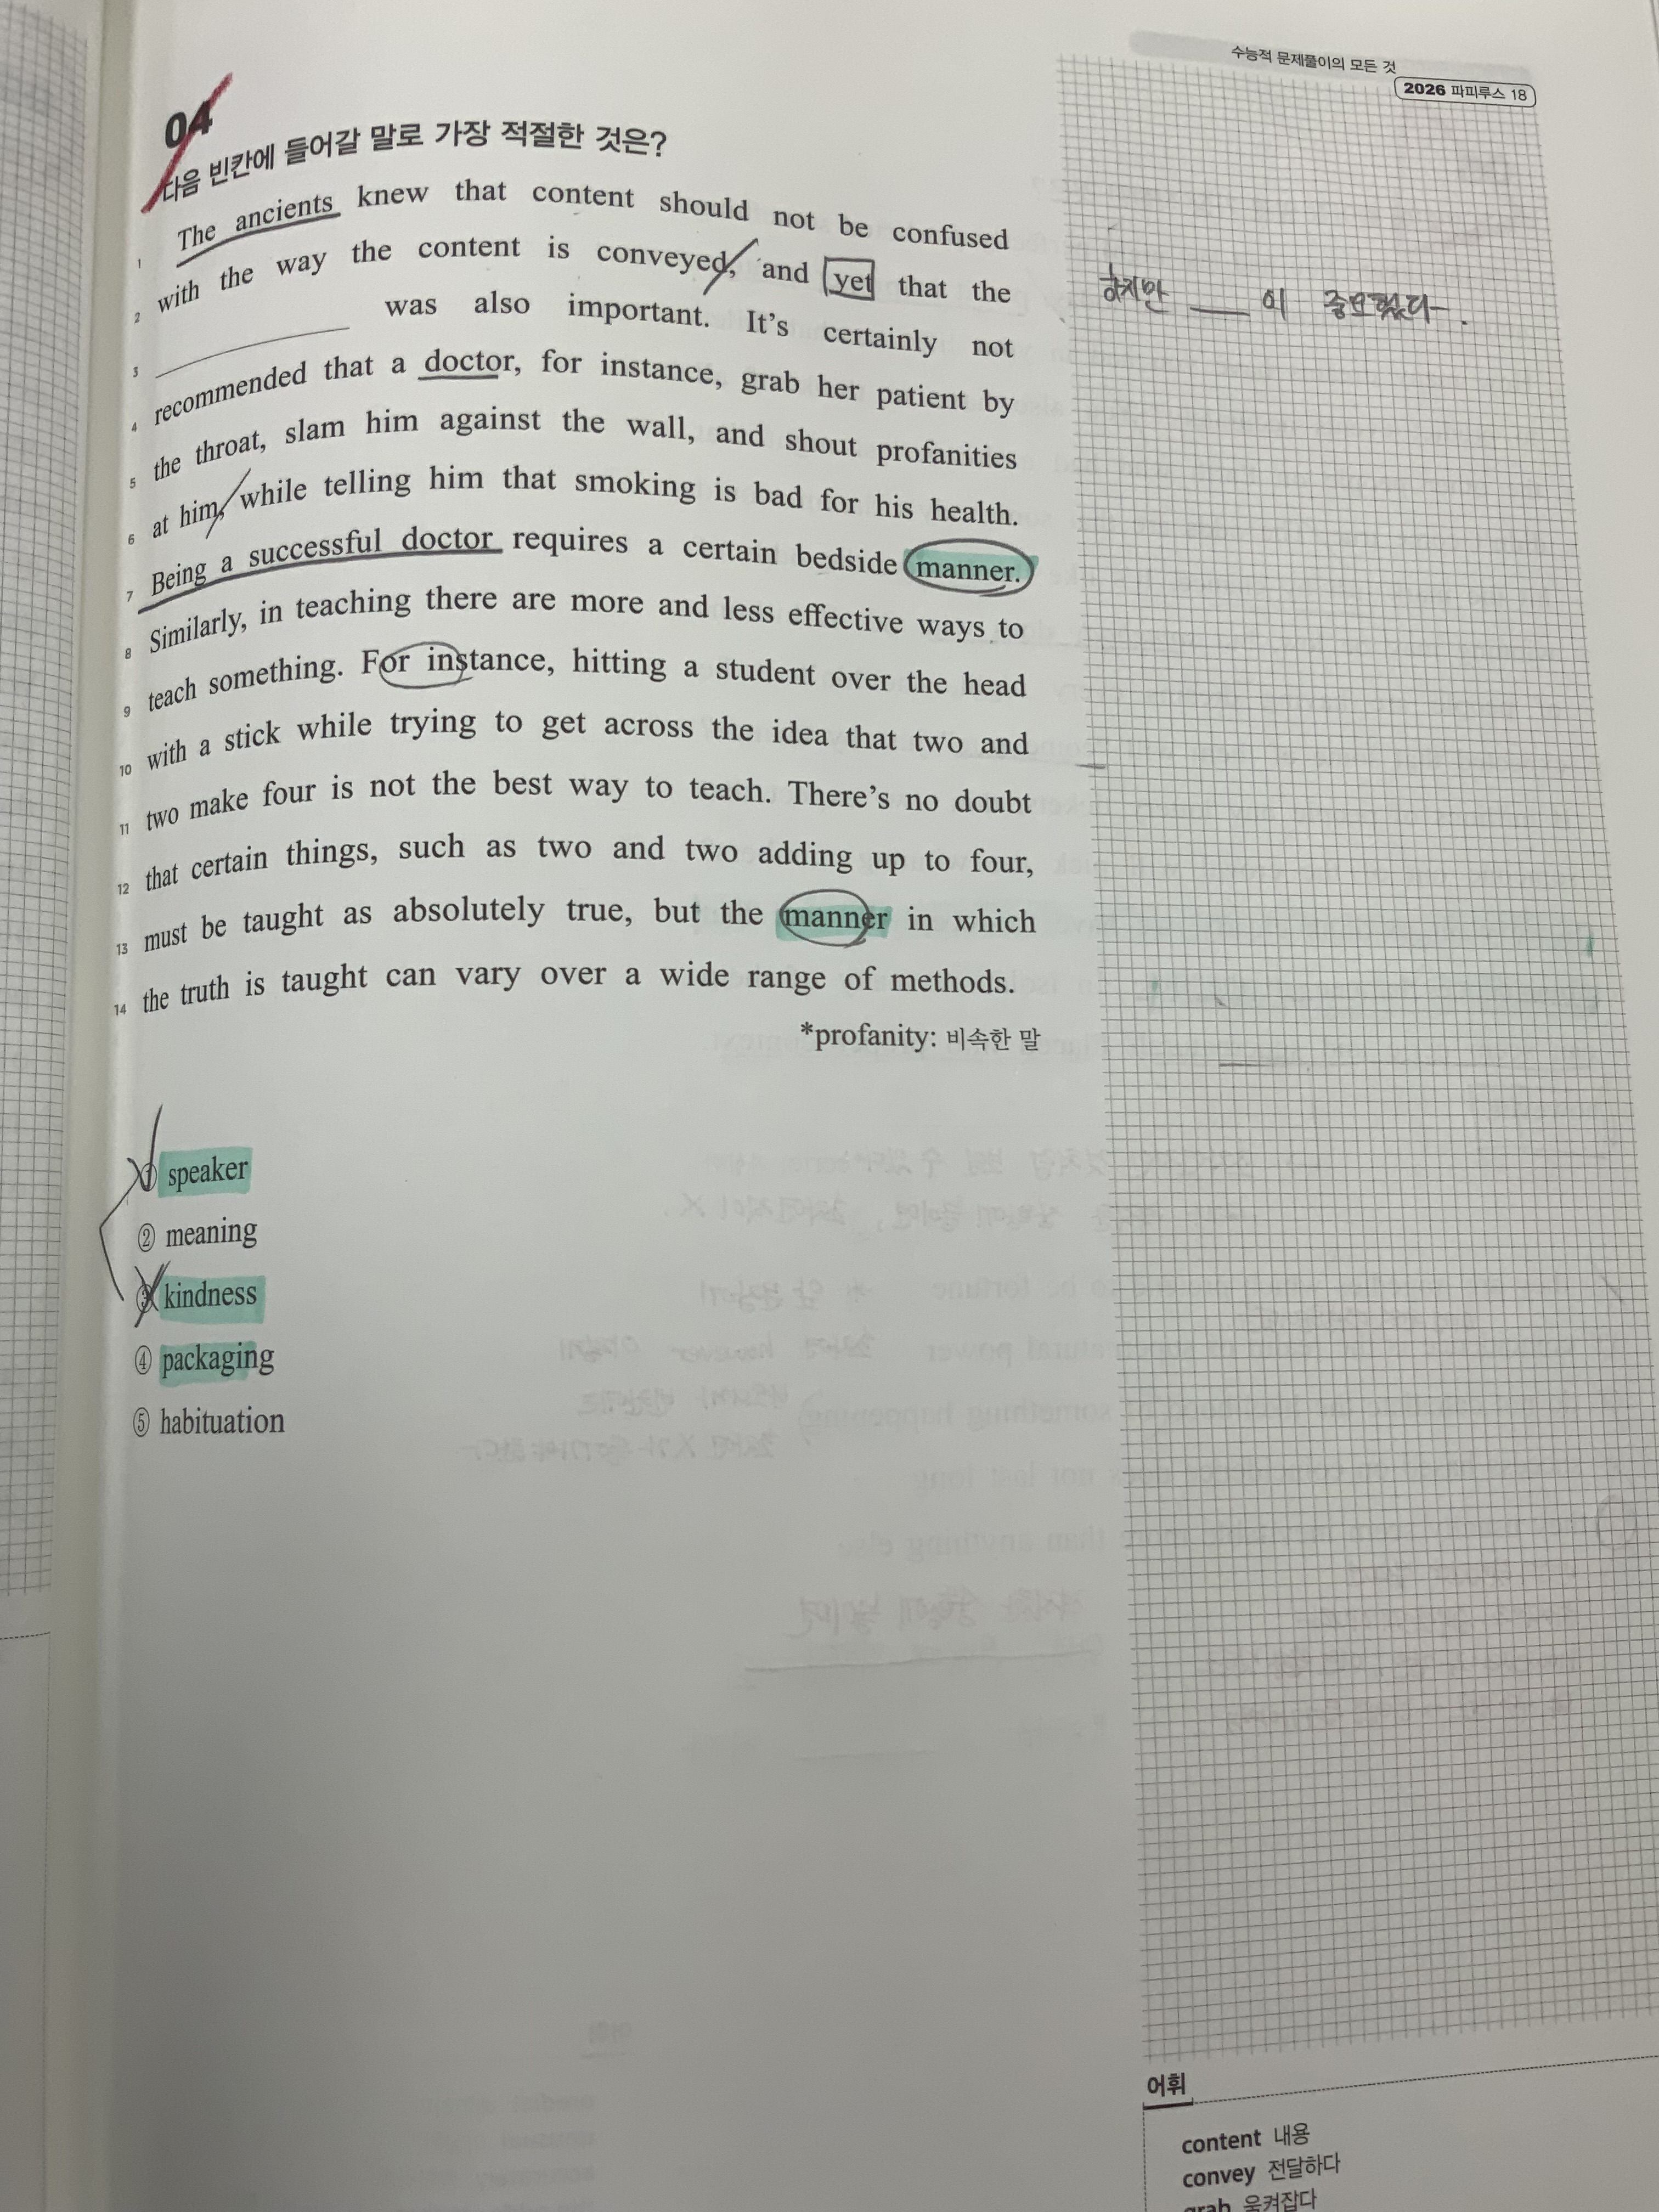 수능적 문제풀이의 모든 것
2026 파피루스 18
04
다음 빈칸에 들어갈 말로 가장 적절한 것은?
1 The ancients knew that content should not be confused
2 with the way the content is conveyed, and yet that the
3 __________ was also important. It's certainly not
하지만 ___ 이 중요했다.
4 recommended that a doctor, for instance, grab her patient by
5 the throat, slam him against the wall, and shout profanities
6 at him, while telling him that smoking is bad for his health.
7 Being a successful doctor requires a certain bedside manner.
8 Similarly, in teaching there are more and less effective ways to
9 teach something. For instance, hitting a student over the head
10 with a stick while trying to get across the idea that two and
11 two make four is not the best way to teach. There's no doubt
12 that certain things, such as two and two adding up to four,
13 must be taught as absolutely true, but the manner in which
14 the truth is taught can vary over a wide range of methods.
*profanity: 비속한 말
① speaker
② meaning
③ kindness
④ packaging
⑤ habituation
어휘
content 내용
convey 전달하다
grab 움켜잡다